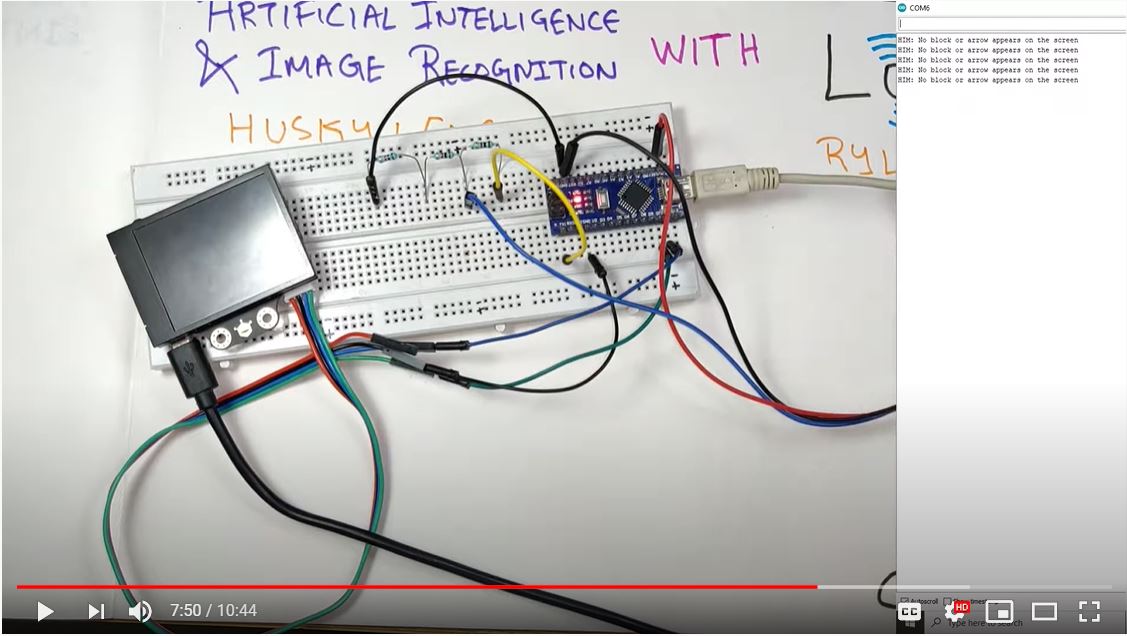 ARTIFICIAL INTELLIGENCE
& IMAGE RECOGNITION WITH
HUSKY
RYL
COM6
HIM: No block or arrow appears on the screen
HIM: No block or arrow appears on the screen
HIM: No block or arrow appears on the screen
HIM: No block or arrow appears on the screen
HIM: No block or arrow appears on the screen
7:50 / 10:44
CC
HD
Autoscroll
Type here to search